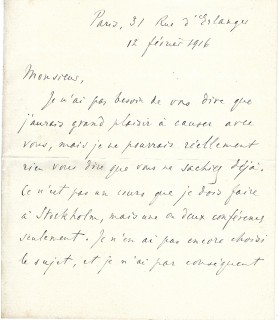 Paris, 31 Rue d'Erlanger
12 février 1916
Monsieur,
Je n'ai pas besoin de vous dire que
j'aurais grand plaisir à causer avec
vous, mais je ne pourrais réellement
rien vous dire que vous ne sachiez déjà.
Ce n'est pas un cours que je dois faire
à Stockholm, mais une ou deux conférences
seulement. Je n'en ai pas encore choisi
le sujet, et je n'ai par conséquent